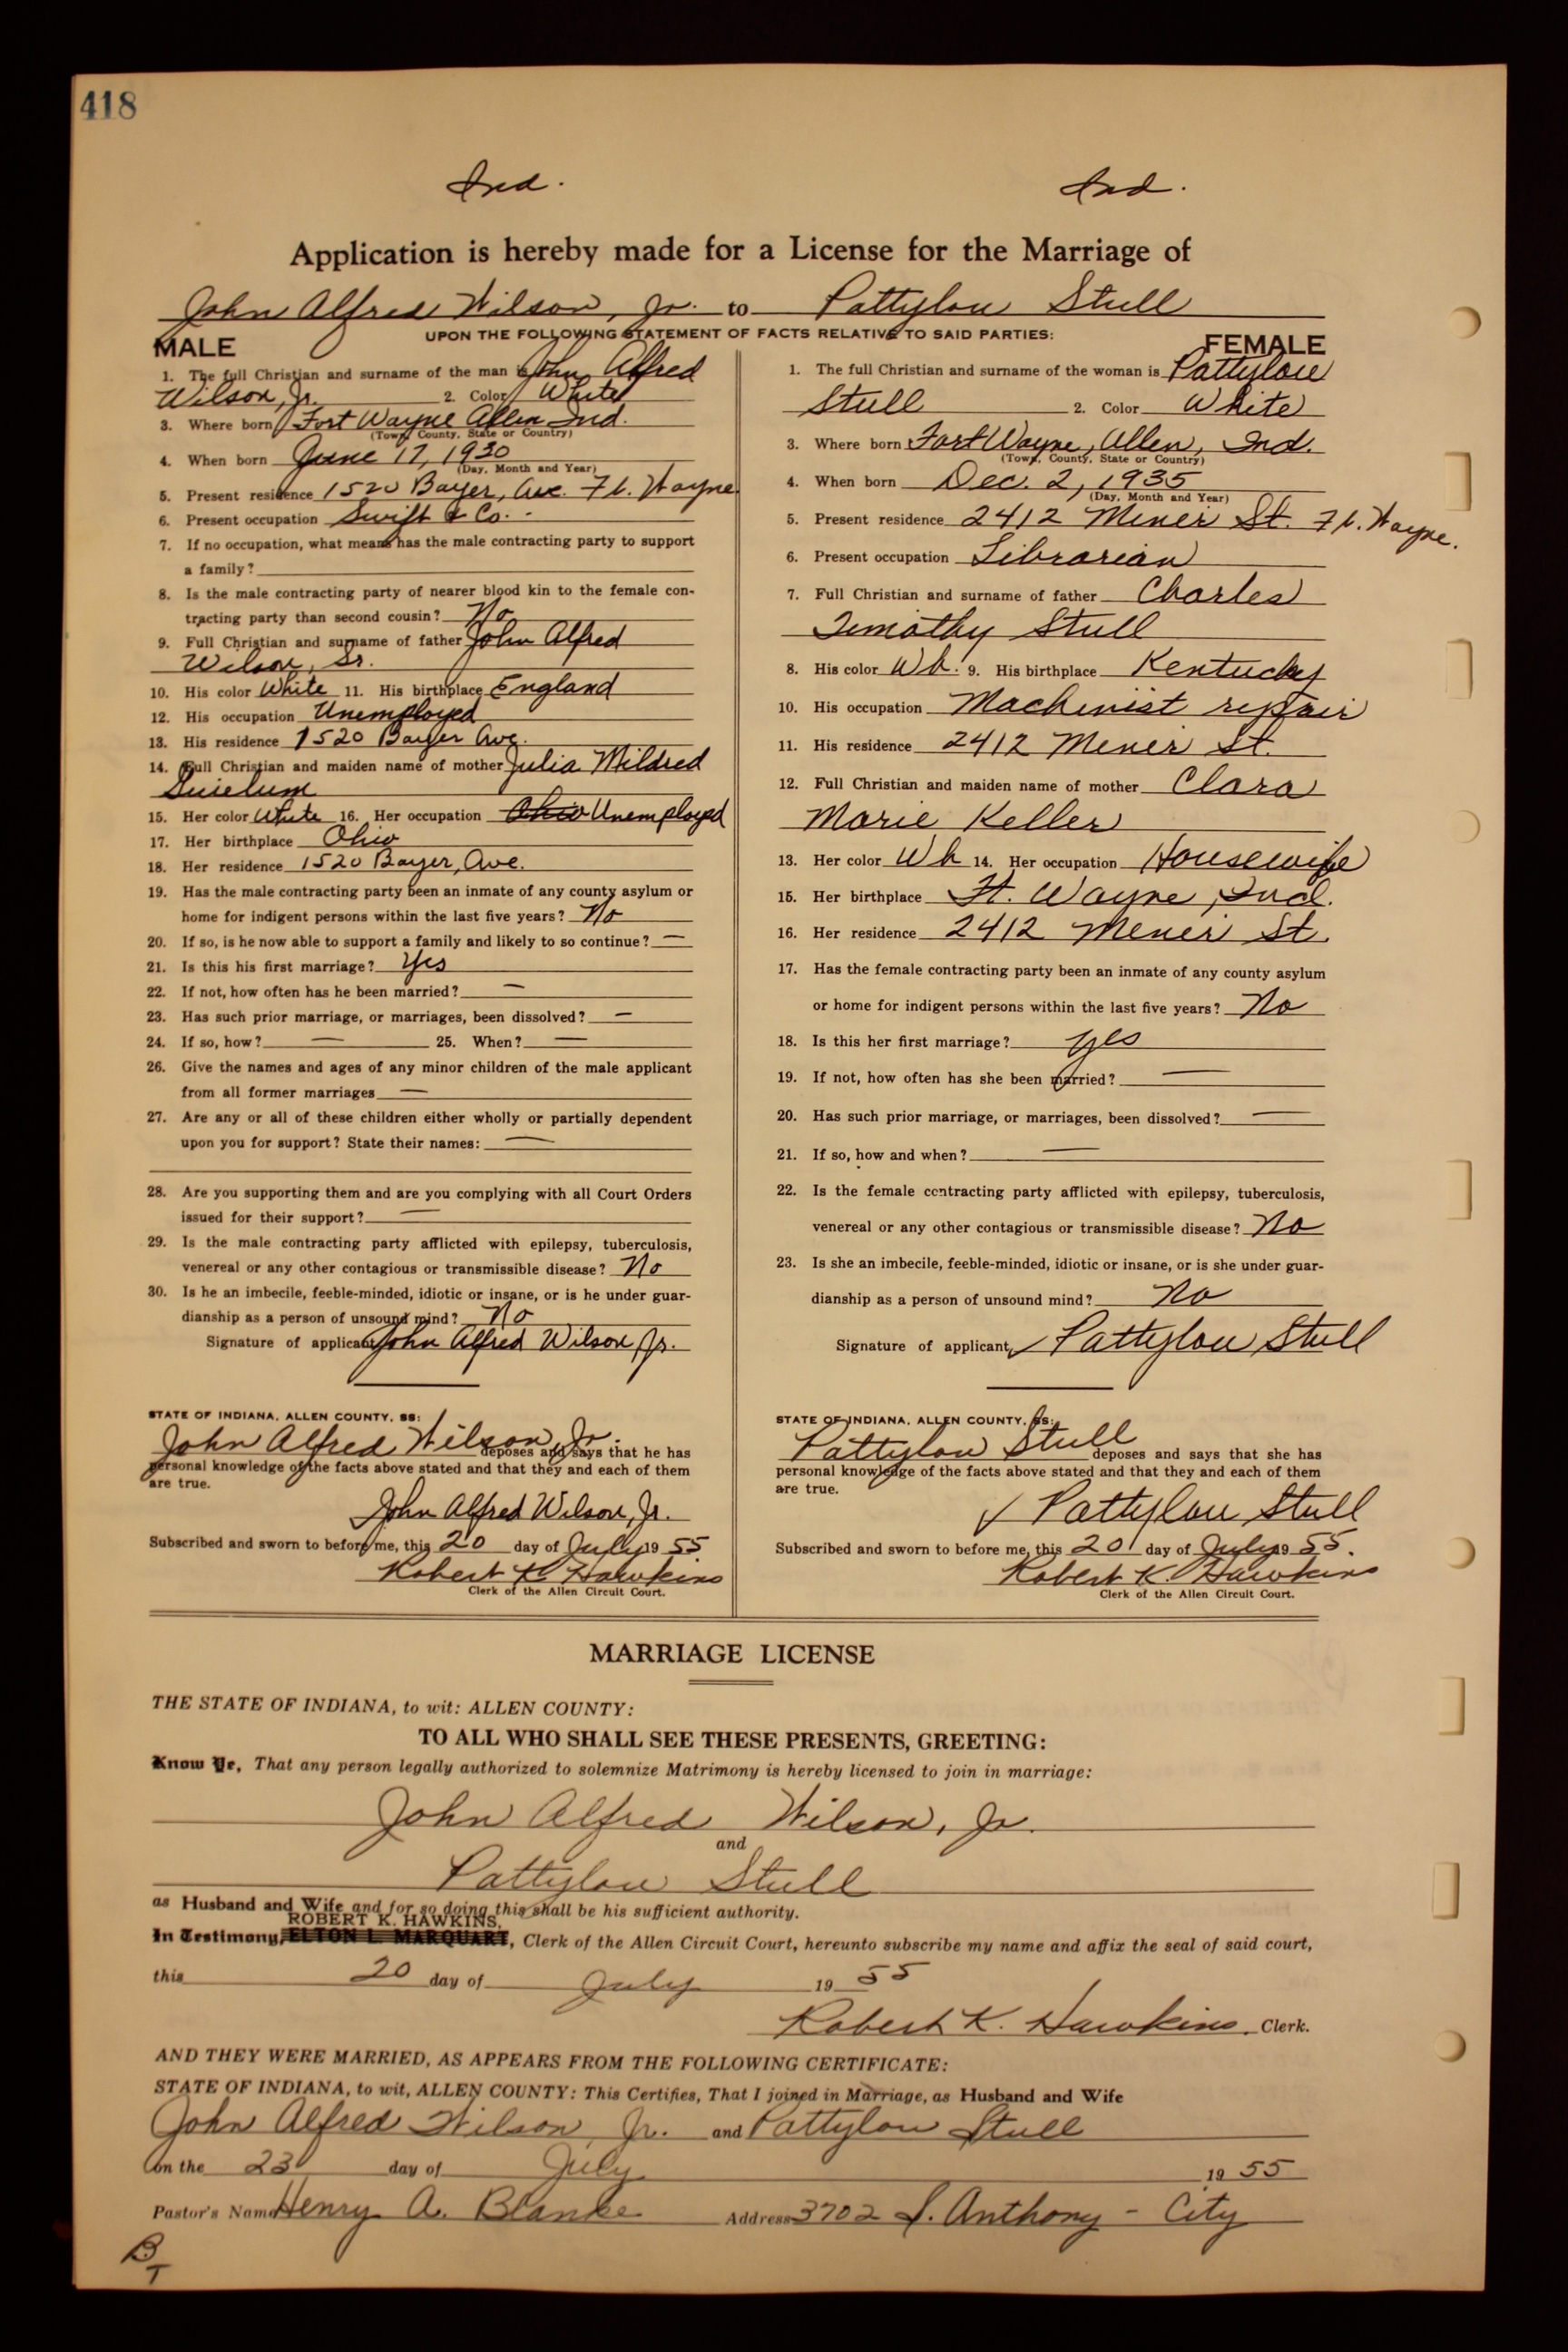 418
Ind. Ind.
Application is hereby made for a License for the Marriage of
John Alfred Wilson, Jr. to Pattylou Stull
UPON THE FOLLOWING STATEMENT OF FACTS RELATIVE TO SAID PARTIES:
MALE
1. The full Christian and surname of the man is John Alfred
Wilson, Jr. 2. Color White
3. Where born Fort Wayne Allen Ind.
(Town, County, State or Country)
4. When born June 17, 1930
(Day, Month and Year)
5. Present residence 1520 Bayer, Ave. Ft. Wayne
6. Present occupation Swift & Co.
7. If no occupation, what means has the male contracting party to support
a family?
8. Is the male contracting party of nearer blood kin to the female con-
tracting party than second cousin? No
9. Full Christian and surname of father John Alfred
Wilson, Sr.
10. His color White 11. His birthplace England
12. His occupation Unemployed
13. His residence 1520 Bayer Ave.
14. Full Christian and maiden name of mother Julia Mildred
15. Her color White 16. Her occupation Ohio Unemployed
17. Her birthplace Ohio
18. Her residence 1520 Bayer, Ave.
19. Has the male contracting party been an inmate of any county asylum or
home for indigent persons within the last five years? No
20. If so, is he now able to support a family and likely to so continue? —
21. Is this his first marriage? Yes
22. If not, how often has he been married? —
23. Has such prior marriage, or marriages, been dissolved? —
24. If so, how? — 25. When? —
26. Give the names and ages of any minor children of the male applicant
from all former marriages —
27. Are any or all of these children either wholly or partially dependent
upon you for support? State their names: —
28. Are you supporting them and are you complying with all Court Orders
issued for their support? —
29. Is the male contracting party afflicted with epilepsy, tuberculosis,
venereal or any other contagious or transmissible disease? No
30. Is he an imbecile, feeble-minded, idiotic or insane, or is he under guar-
dianship as a person of unsound mind? No
Signature of applicant John Alfred Wilson, Jr.
STATE OF INDIANA, ALLEN COUNTY, SS:
John Alfred Wilson, Jr. deposes and says that he has
personal knowledge of the facts above stated and that they and each of them
are true.
John Alfred Wilson, Jr.
Subscribed and sworn to before me, this 20 day of July 19 55
Robert K. Hawkins
Clerk of the Allen Circuit Court.
FEMALE
1. The full Christian and surname of the woman is Pattylou
Stull 2. Color White
3. Where born Fort Wayne, Allen, Ind.
(Town, County, State or Country)
4. When born Dec. 2, 1935
(Day, Month and Year)
5. Present residence 2412 Mener St. Ft. Wayne.
6. Present occupation Librarian
7. Full Christian and surname of father Charles
Timothy Stull
8. His color Wh. 9. His birthplace Kentucky
10. His occupation Machinist repair
11. His residence 2412 Mener St.
12. Full Christian and maiden name of mother Clara
Marie Keller
13. Her color Wh 14. Her occupation Housewife
15. Her birthplace Ft. Wayne, Ind.
16. Her residence 2412 Mener St.
17. Has the female contracting party been an inmate of any county asylum
or home for indigent persons within the last five years? No
18. Is this her first marriage? yes
19. If not, how often has she been married? —
20. Has such prior marriage, or marriages, been dissolved? —
21. If so, how and when? —
22. Is the female contracting party afflicted with epilepsy, tuberculosis,
venereal or any other contagious or transmissible disease? No
23. Is she an imbecile, feeble-minded, idiotic or insane, or is she under guar-
dianship as a person of unsound mind? No
Signature of applicant, ✓ Pattylou Stull
STATE OF INDIANA, ALLEN COUNTY, SS:
Pattylou Stull deposes and says that she has
personal knowledge of the facts above stated and that they and each of them
are true.
✓ Pattylou Stull
Subscribed and sworn to before me, this 20 day of July 19 55.
Robert K. Hawkins
Clerk of the Allen Circuit Court.
MARRIAGE LICENSE
THE STATE OF INDIANA, to wit: ALLEN COUNTY:
TO ALL WHO SHALL SEE THESE PRESENTS, GREETING:
Know Ye, That any person legally authorized to solemnize Matrimony is hereby licensed to join in marriage:
John Alfred Wilson, Jr.
and
Pattylou Stull
as Husband and Wife and for so doing this shall be his sufficient authority.
ROBERT K. HAWKINS,
In Testimony, ELTON L. MARQUART, Clerk of the Allen Circuit Court, hereunto subscribe my name and affix the seal of said court,
this 20 day of July 19 55
Robert K. Hawkins, Clerk.
AND THEY WERE MARRIED, AS APPEARS FROM THE FOLLOWING CERTIFICATE:
STATE OF INDIANA, to wit, ALLEN COUNTY: This Certifies, That I joined in Marriage, as Husband and Wife
John Alfred Wilson, Jr. and Pattylou Stull
on the 23 day of July 19 55
Pastor's Name Henry A. Blanke Address 3702 S. Anthony - City
B
T